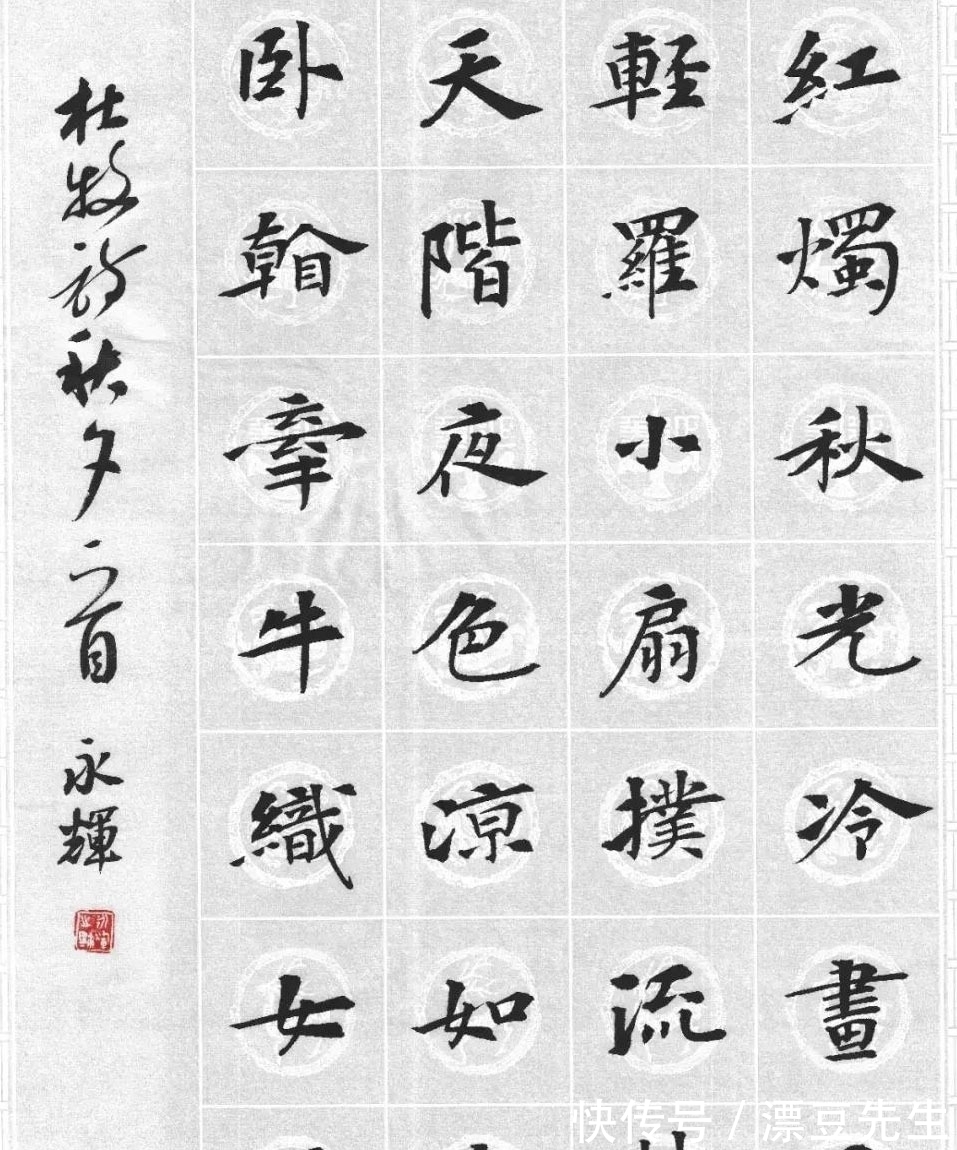 紅燭秋光冷畫
輕羅小扇撲流
天階夜色涼如
卧看牽牛織女
杜牧詩秋夕一首 永輝
快传号/漂豆先生